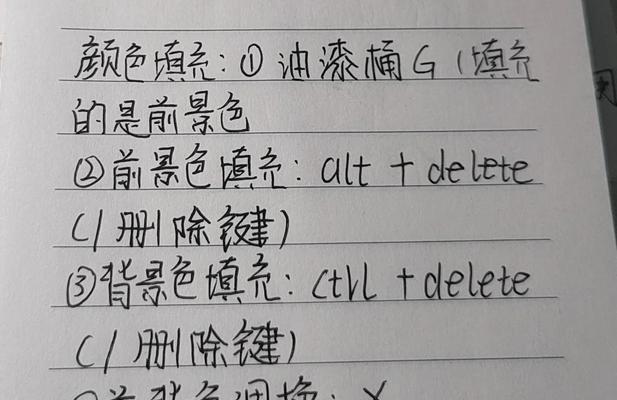 颜色填充:① 油漆桶 G (填充
的是前景色
②前景色填充: alt + delete
(/删除键)
③背景色填充: ctrl + delete
(/删除键)